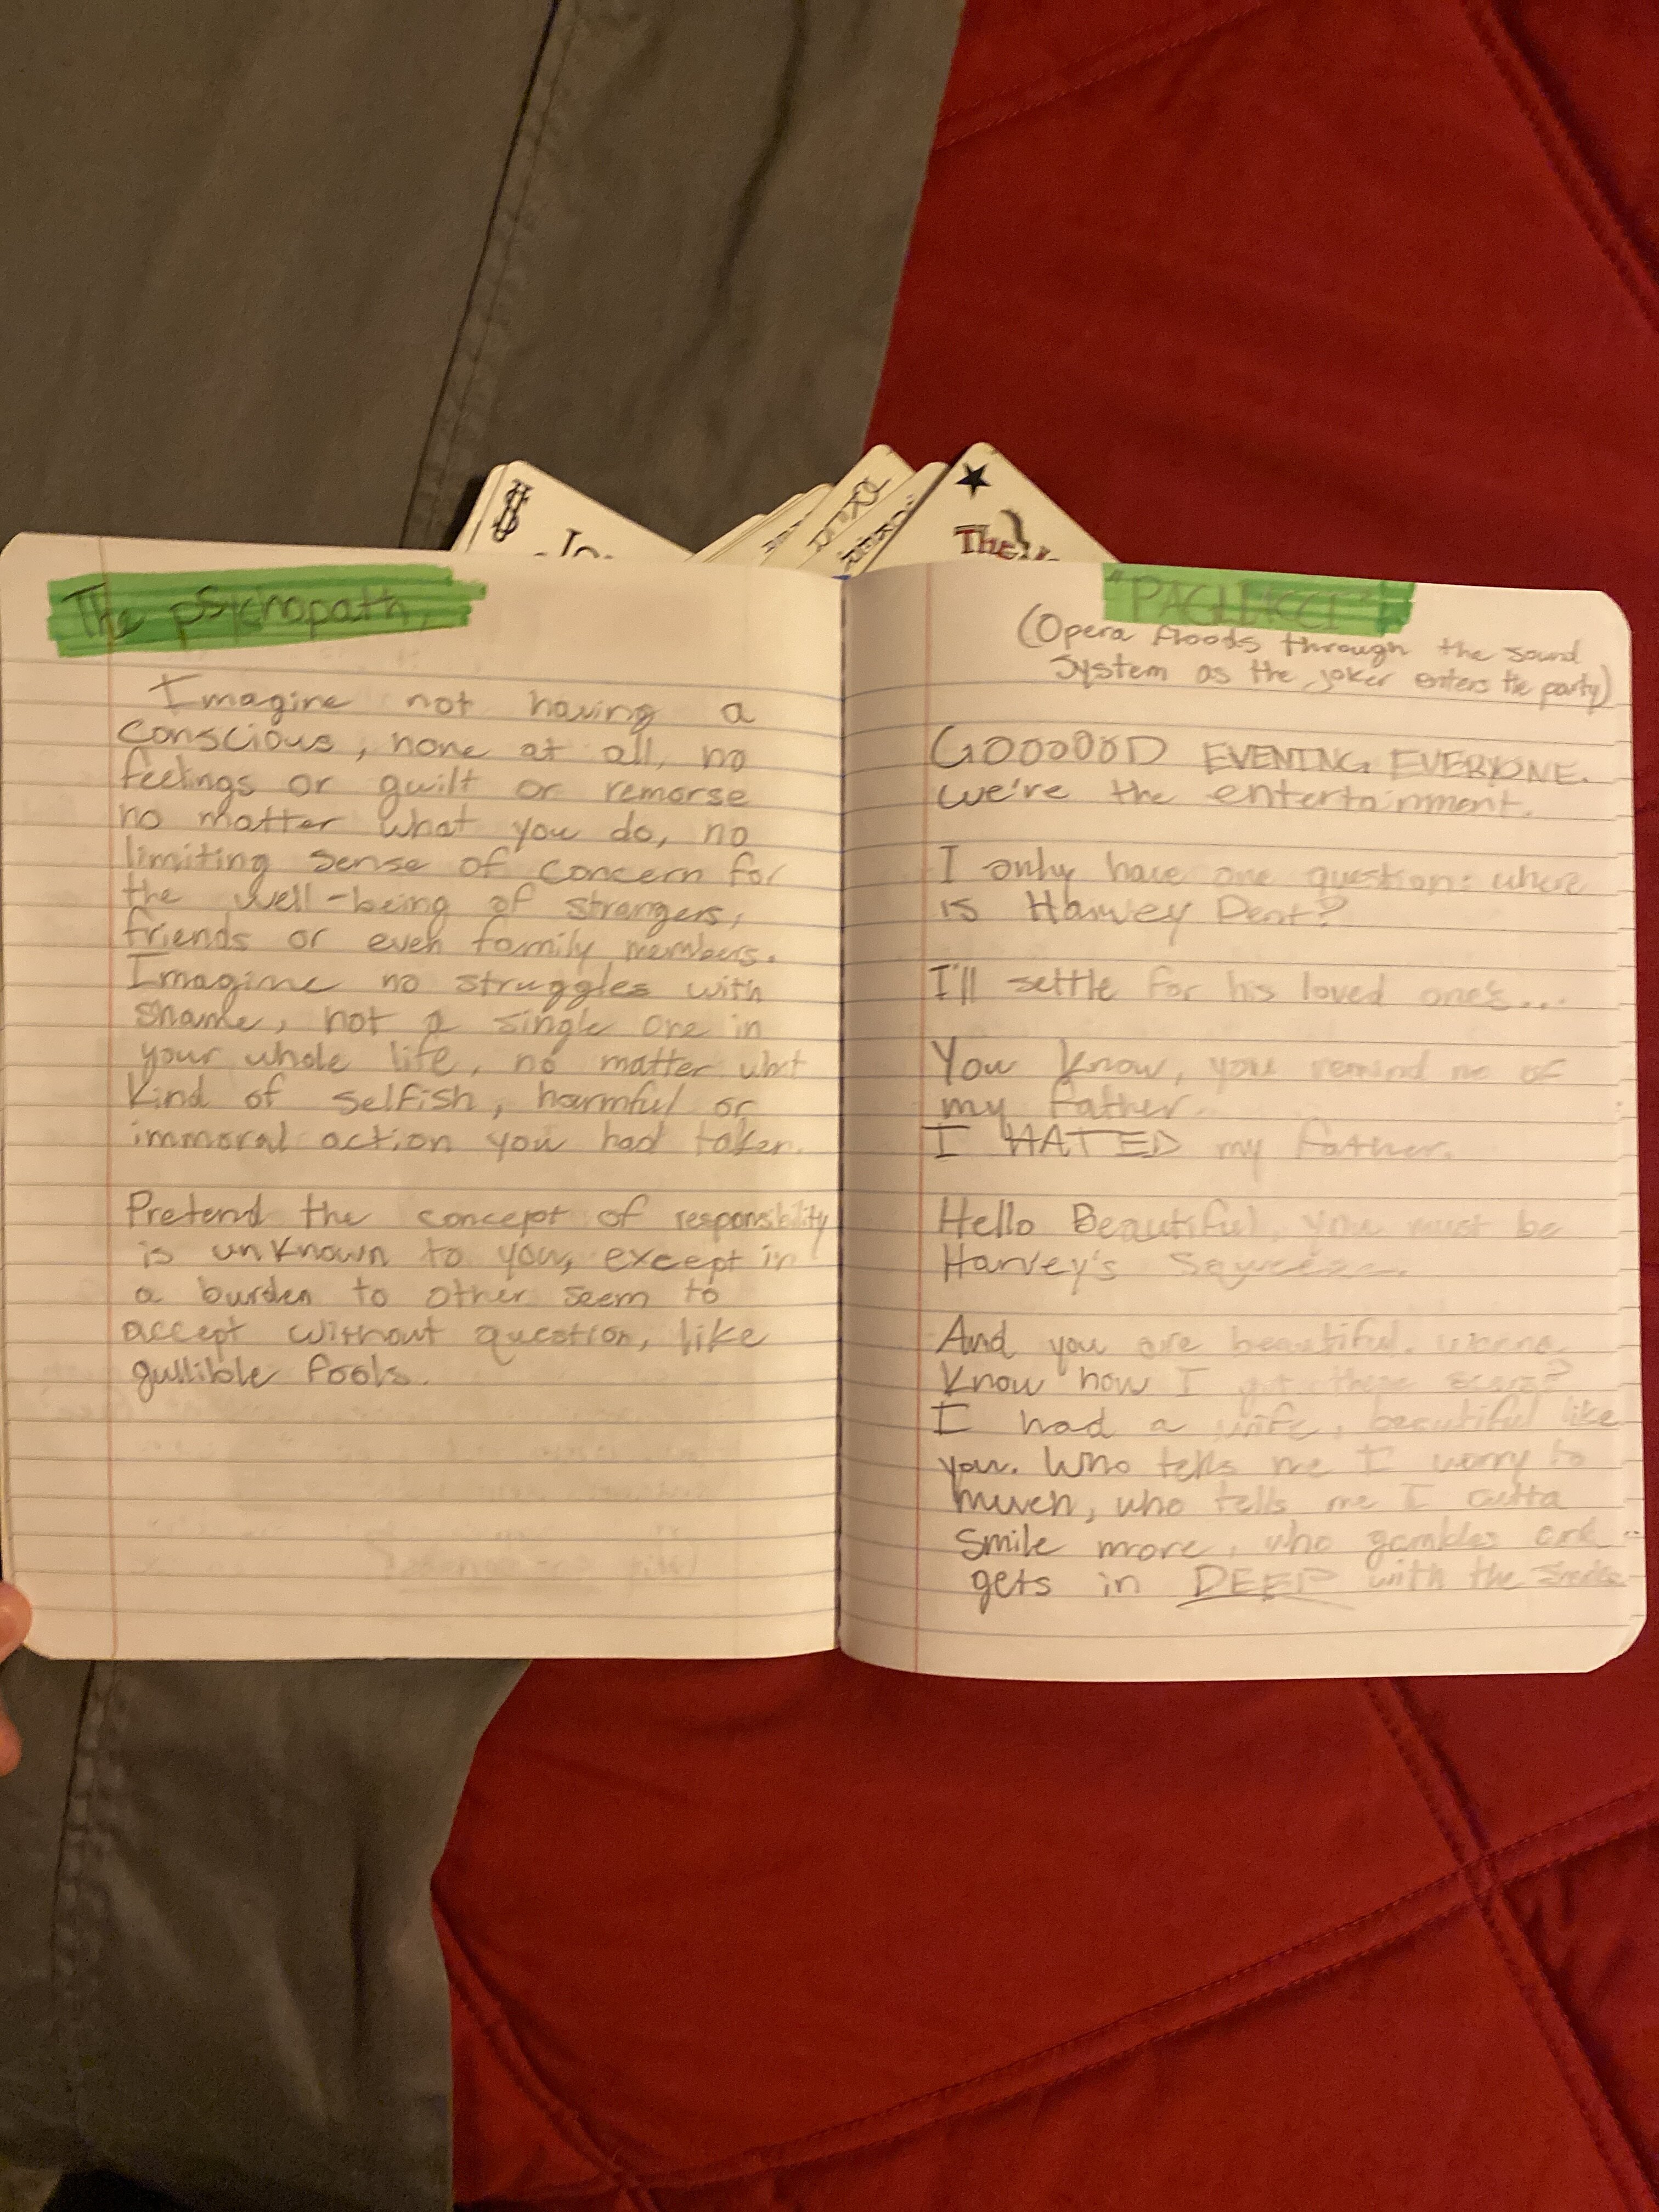 $
Jo
The
The psychopath,
Imagine not having a
conscious, none at all, no
feelings or guilt or remorse
no matter what you do, no
limiting sense of concern for
the well-being of strangers,
friends or even family members.
Imagine no struggles with
shame, not a single one in
your whole life, no matter what
kind of selfish, harmful or
immoral action you had taken.
Pretend the concept of responsibility
is unknown to you, except in
a burden to other seem to
accept without question, like
gullible fools.
"PAGLIACCI"
(Opera floods through the sound
system as the joker enters the party)
GOOOOOD EVENING EVERYONE.
we're the entertainment.
I only have one question: where
is Harvey Dent?
I'll settle for his loved one's...
You know, you remind me of
my father.
I HATED my father.
Hello Beautiful, you must be
Harvey's Squeeze.
And you are beautiful. wanna
know how I got these scars?
I had a wife, beautiful like
you. Who tells me I worry to
much, who tells me I outta
smile more, who gambles and
gets in DEEP with the